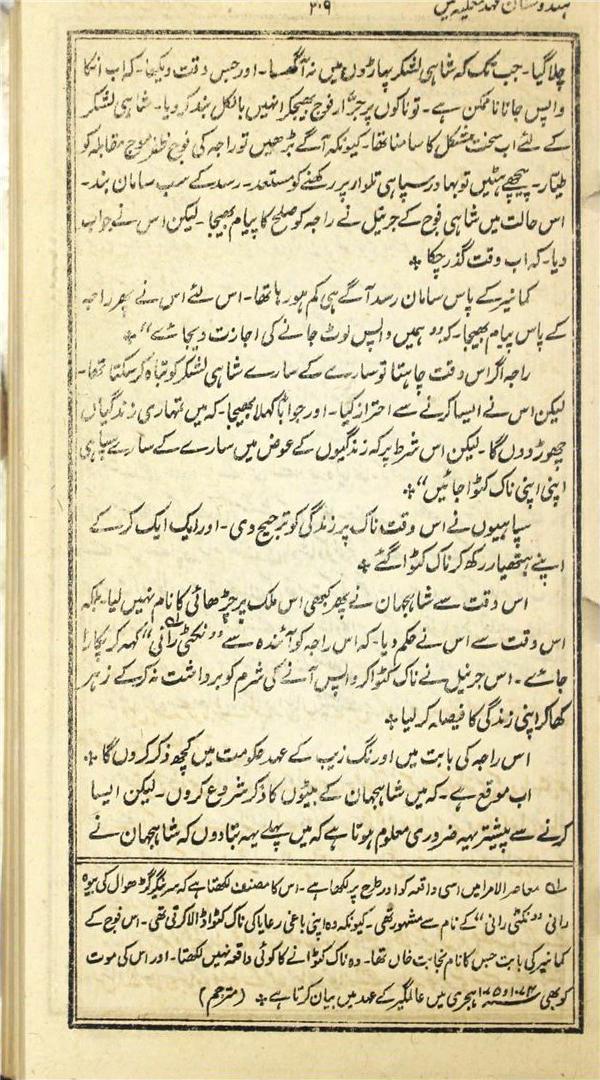 ہندوستان عہد مغلیہ میں ۲۰۹
چلا گیا۔ جب تک کہ شاہی لشکر پہاڑوں میں نہ آگھسا۔ اور جس وقت دیکھا۔ کہ اب انکا
واپس جانا ناممکن ہے۔ تو ناکوں پر جرّار فوج بھیجکر انہیں بالکل بند کر دیا۔ شاہی لشکر
کے لئے اب سخت مشکل کا سامنا تھا۔ کیونکہ آگے بڑھیں تو راجہ کی فوج ظفر موج مقابلہ کو
طیّار۔ پیچھے ہٹیں تو بہادر سپاہی تلوار پر رکھنے کو مستعد۔ رسد کے سب سامان بند۔
اس حالت میں شاہی فوج کے جرنیل نے راجہ کو صلح کا پیام بھیجا۔ لیکن اس نے جواب
دیا۔ کہ اب وقت گذر چکا ٭
کمانیر کے پاس سامان رسد آگے ہی کم ہو رہا تھا۔ اس لئے اس نے پھر راجہ
کے پاس پیام بھیجا۔ کہ ”ہمیں واپس لوٹ جانے کی اجازت دیجائے“ ٭
راجہ اگر اس وقت چاہتا تو سارے کے سارے شاہی لشکر کو تباہ کر سکتا تھا۔
لیکن اس نے ایسا کرنے سے احتراز کیا۔ اور جواباً کہلا بھیجا۔ کہ میں تمہاری زندگیاں
چھوڑ دوں گا۔ لیکن اس شرط پر کہ زندگیوں کے عوض میں سارے کے سارے سپاہی
اپنی اپنی ناک کٹوا جائیں“ ٭
سپاہیوں نے اس وقت ناک پر زندگی کو ترجیح دی۔ اور ایک ایک کر کے
اپنے ہتھیار رکھ کر ناک کٹوا گئے ٭
اس وقت سے شاہجہان نے پھر کبھی اس ملک پر چڑھائی کا نام نہیں لیا۔ بلکہ
اس وقت سے اس نے حکم دیا۔ کہ اس راجہ کو آئندہ سے ”نکٹی رانی“ ؎۱ کہہ کر پکارا
جائے۔ اس جرنیل نے ناک کٹوا کر واپس آنے کی شرم کو برداشت نہ کر کے زہر
کھا کر اپنی زندگی کا فیصلہ کر لیا ٭
اس راجہ کی بابت میں اورنگ زیب کے عہد حکومت میں کچھ ذکر کروں گا ٭
اب موقع ہے۔ کہ میں شاہجہان کے بیٹوں کا ذکر شروع کروں۔ لیکن ایسا
کرنے سے پیشتر یہ ضروری معلوم ہوتا ہے کہ میں پہلے یہہ بتا دوں کہ شاہجہان نے
؎۱ معاصر الامرا میں اسی واقعہ کو اور طرح پر لکھا ہے۔ اس کا مصنف لکھتا ہے کہ سرینگر گڑھوال کی بیوہ
رانی ”نکٹی رانی“ کے نام سے مشہور تھی۔ کیونکہ وہ اپنی باغی رعایا کی ناک کٹوا ڈالا کرتی تھی۔ اس فوج کے
کمانیر کی بابت جس کا نام نجابت خاں تھا۔ وہ ناک کٹوانے کا کوئی واقعہ نہیں لکھتا۔ اور اس کی موت
کو بھی ۱۰۷۴ و ۱۰۷۵ ہجری میں عالمگیر کے عہد میں بیان کرتا ہے ٭ (مترجم)